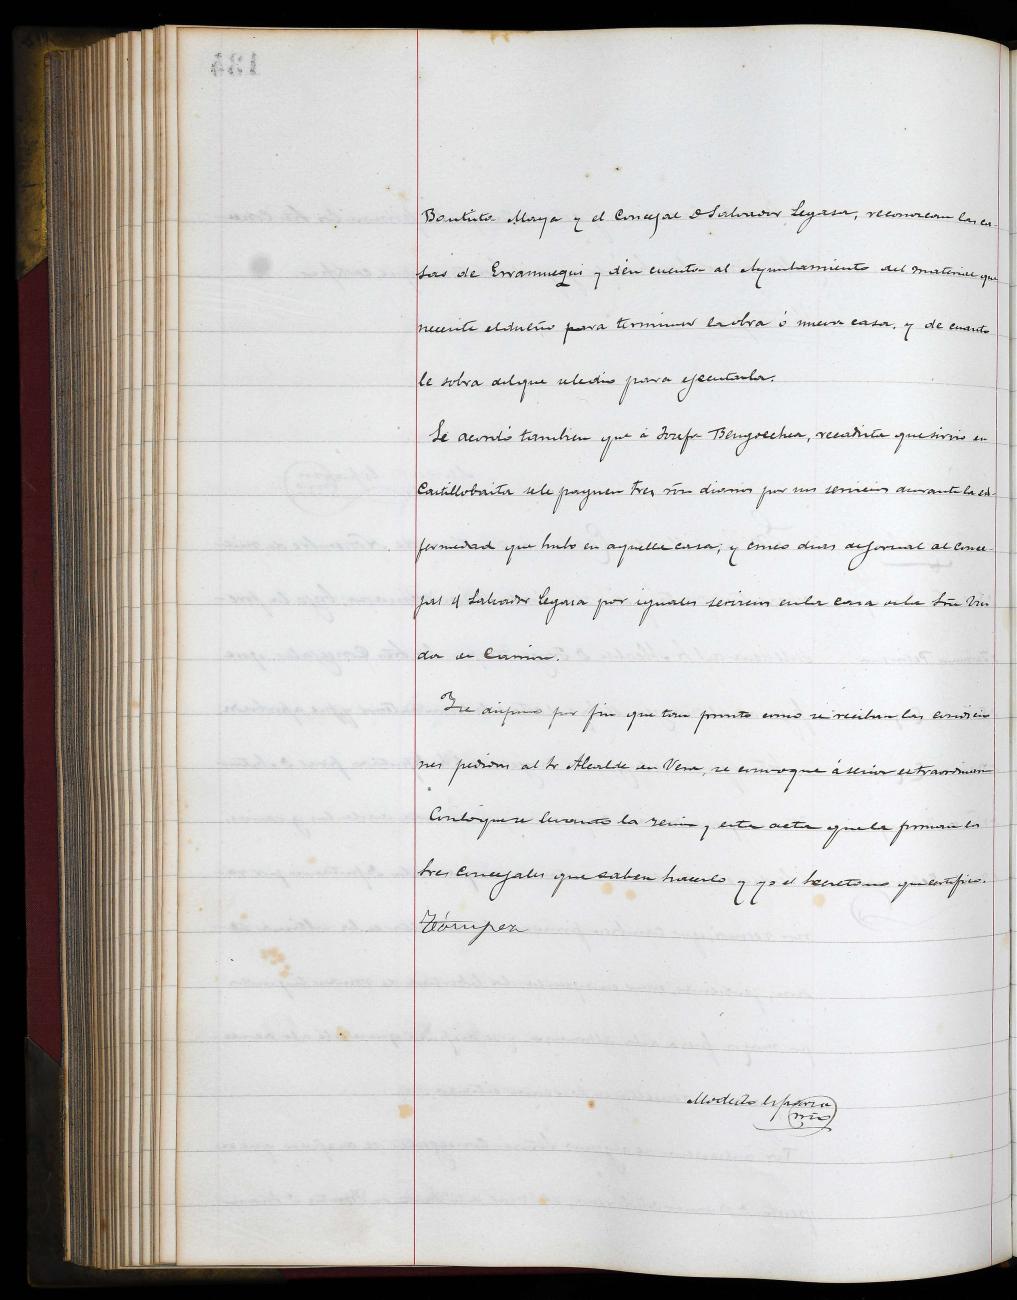 Bautista Maya y el Concejal D Salvador Legasa, reconozcan las ca-
sas de Erramuegui y dén cuenta al Ayuntamiento del material que
necesite el dueño para terminar la obra ó nueva casa, y de cuanto
le sobra del que se le dio para ejecutarla.
Se acordó tambien que á Josefa Bengoechea, recadista que sirvio en
Castillobaita se le paguen tres rvn diarios por sus servicios durante la en-
fermedad que hubo en aquella casa; y cinco dias de jornal al conce-
jal D Salvador Legasa por iguales servicios en la casa de la Sra Viu
da de
Y se dispuso por fin que tan pronto como se reciban las condicio
nes pedidas al Sr Alcalde en Vera, se convoque á sesion extraordinaria
Con lo que se levanto la sesion y esta acta que la firman los
tres concejales que saben hacerlo y yo el Secretario que certifico.
Modesto Esparza
srio